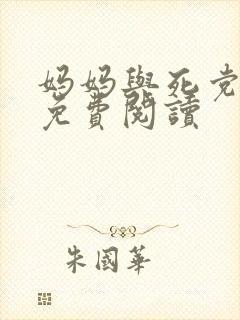 妈妈與死党
免費閱讀
朱國華